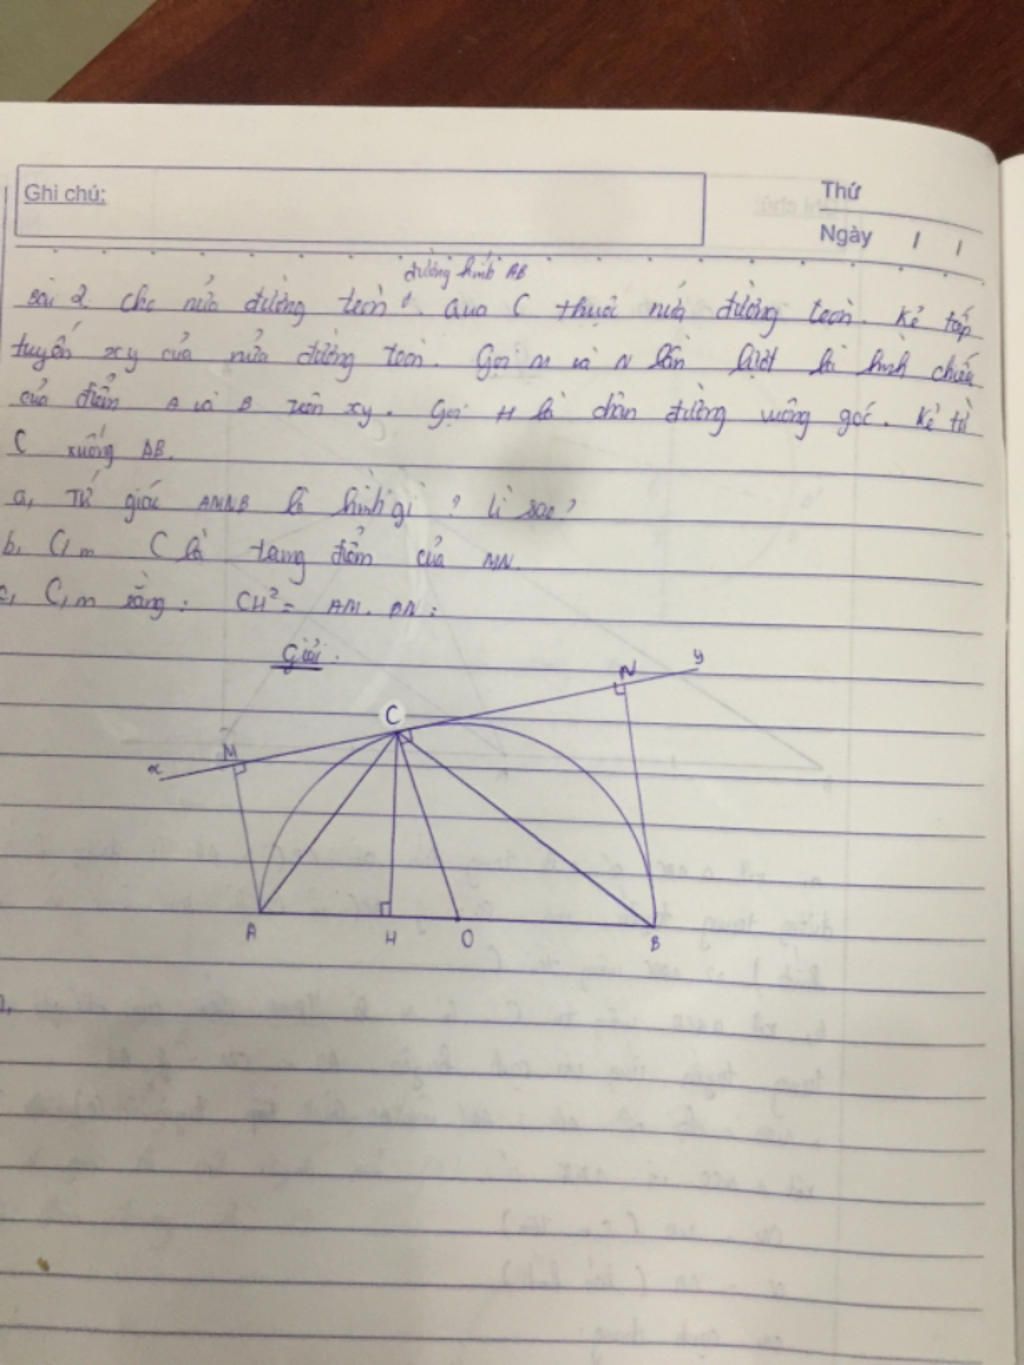 Ghi chú:
Thứ
Ngày / /
đường kính AB
Bài 2. Cho nửa đường tròn. Qua C thuộc nửa đường tròn. Kẻ tiếp
tuyến xy của nửa đường tròn. Gọi M và N lần lượt là hình chiếu
của điểm A và B trên xy. Gọi H là chân đường vuông góc. Kẻ từ
C xuống AB.
a, Tứ giác AMNB là hình gì? Vì sao?
b, C/m C là trung điểm của MN.
c, C/m rằng: CH² = AM. BN:
Giải.
y
N
C
M
x
A H O B